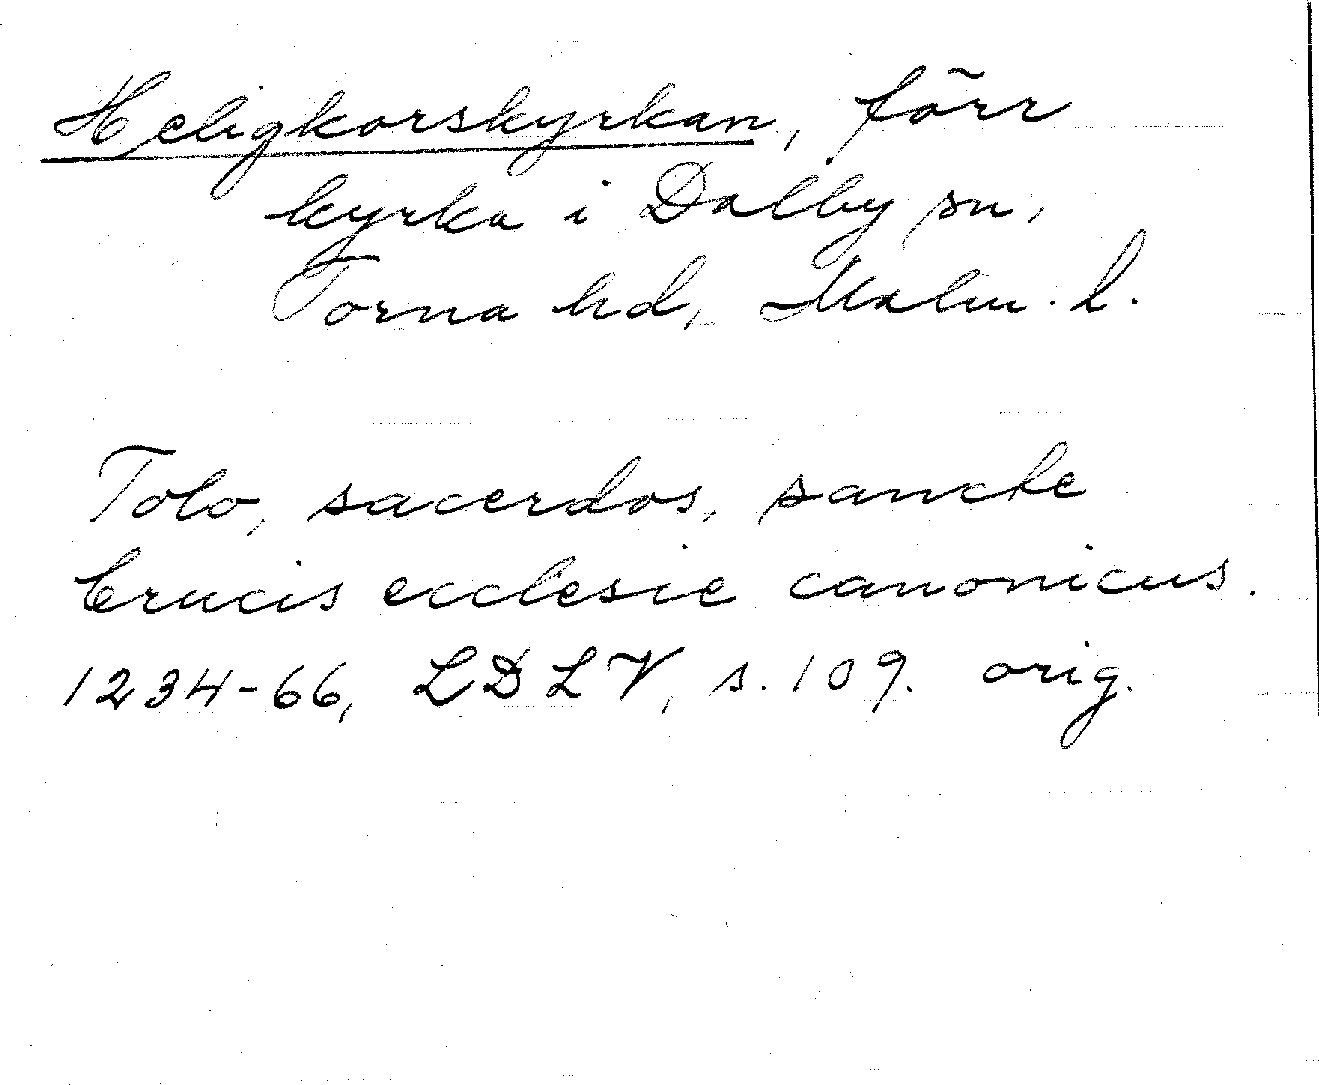 Heligkorskyrkan, förr
kyrka i Dalby sn,
Torna hd, Malm. l.
Tolo, sacerdos, sancte
Crucis ecclesie canonicus.
1234-66, LDLV, s. 109. orig.